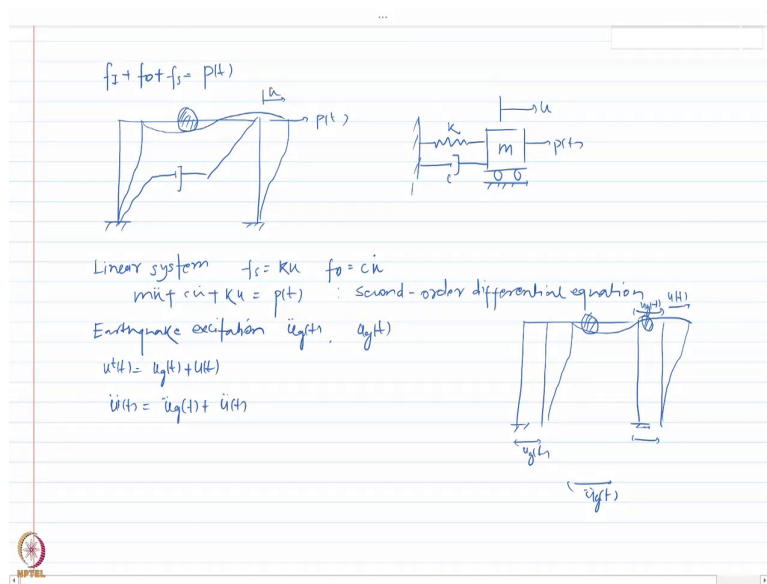 ...
f_I + f_D + f_s = p(t)
u
p(t)
u
k
m
p(t)
c
Linear system f_s = ku f_D = cu̇
mü + cu̇ + ku = p(t) : second-order differential equation
Earthquake excitation ü_g(t), u_g(t)
u_g(t) u(t)
u^t(t) = u_g(t) + u(t)
ü(t) = ü_g(t) + ü(t)
u_g(t)
ü_g(t)
NPTEL